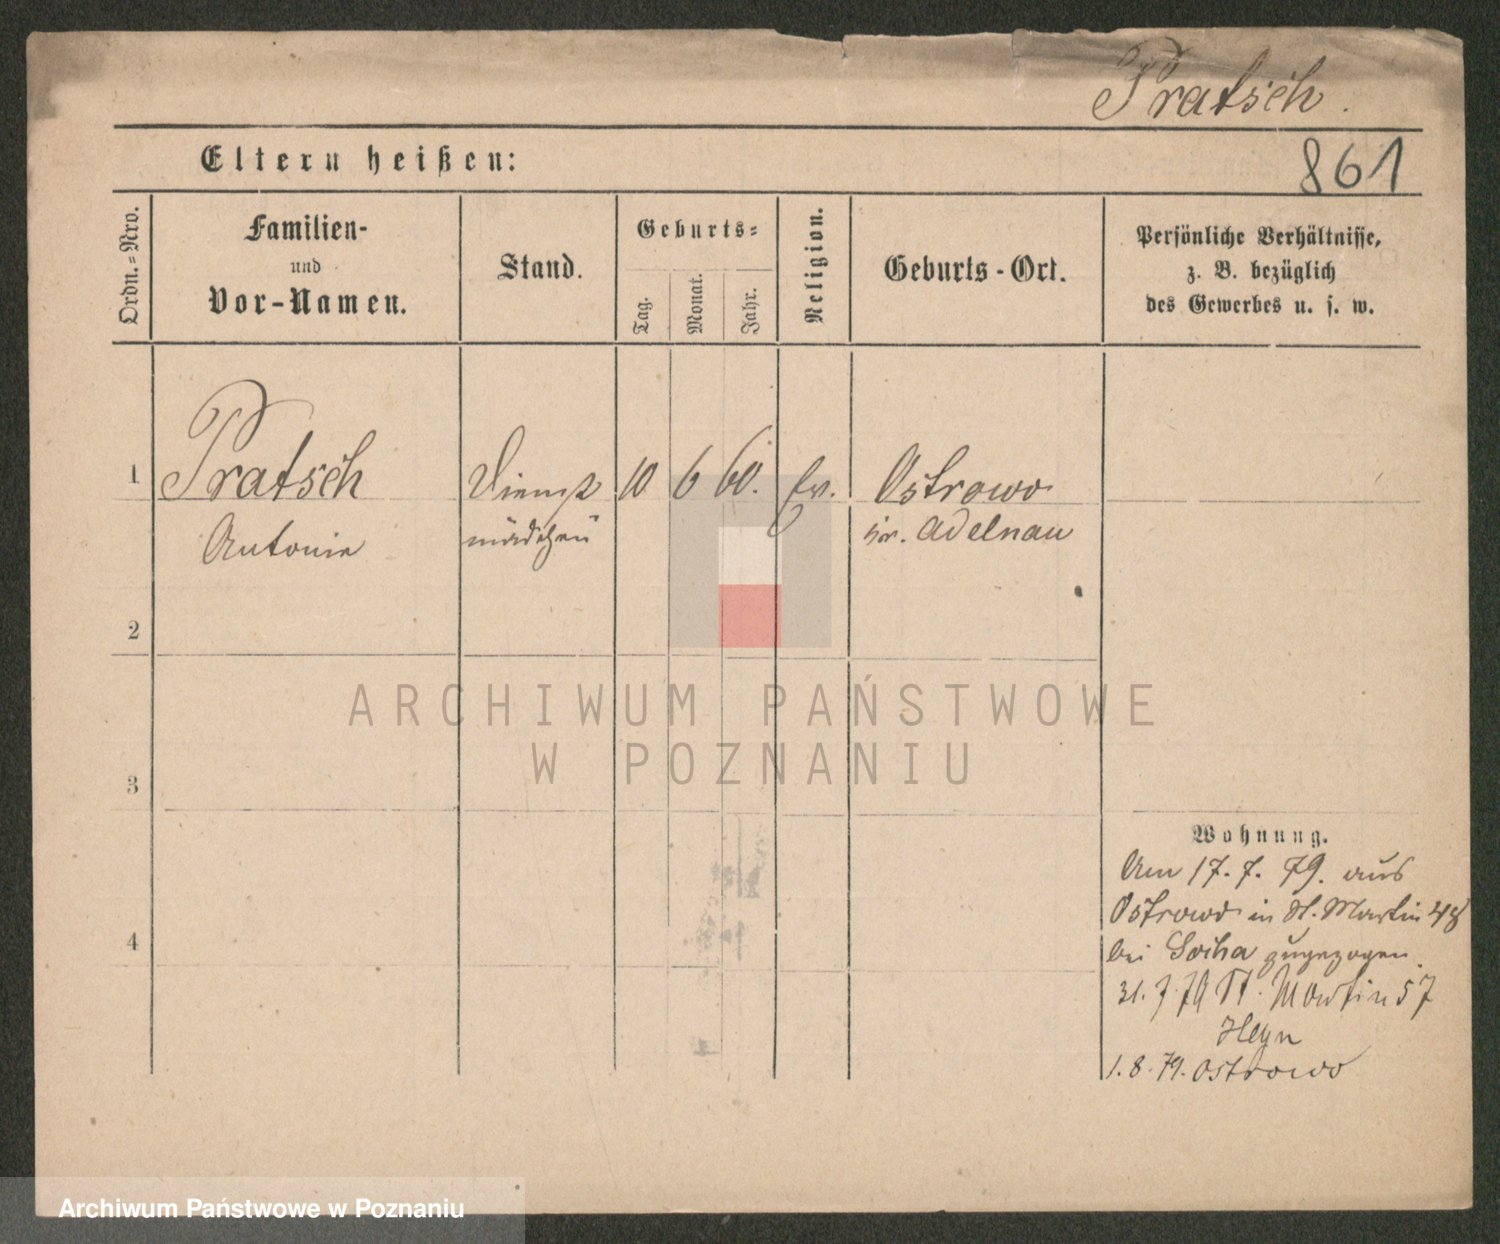 Pratsch.
Eltern heißen:
861
Ordn.-Nro.
Familien-
und
Vor-Namen.
Stand.
Geburts-
Tag.
Monat.
Jahr.
Religion.
Geburts-Ort.
Persönliche Verhältnisse,
z. B. bezüglich
des Gewerbes u. s. w.
1 Pratsch Dienst 10 6 60. ev. Ostrowo
Antonie mädchen Kr. Adelnau
2
3
4
Wohnung.
Am 17. 7. 79. aus
Ostrowo in St. Martin 48
bei Socha zugezogen.
31. 7. 79 St. Martin 57
Heyn
1. 8. 79. Ostrowo
ARCHIWUM PAŃSTWOWE
W POZNANIU
Archiwum Państwowe w Poznaniu